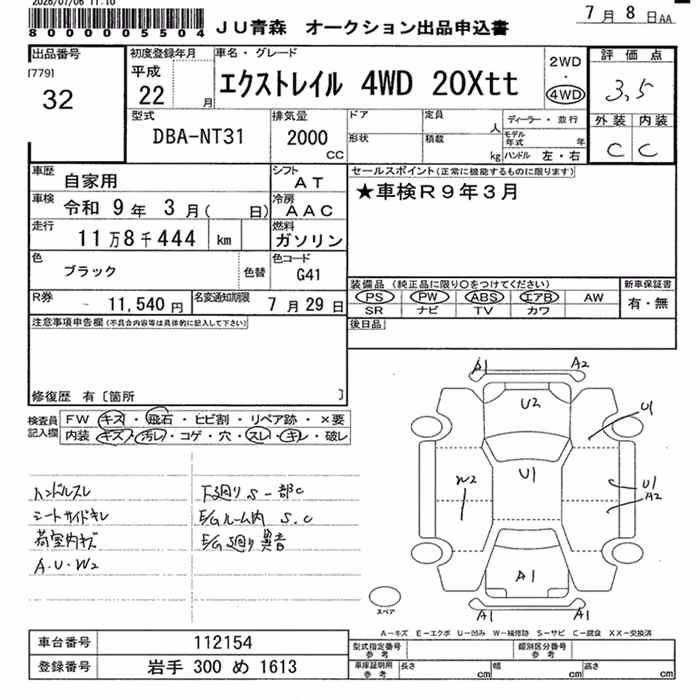 2026/07/06 11:10
8000005504
JU青森 オークション出品申込書
7月 8日AA
出品番号
[779]
32
初度登録年月
平成
22 月
車名・グレード
エクストレイル 4WD 20Xtt
2WD
・
4WD
評価点
3.5
外装 内装
C C
型式
DBA-NT31
排気量
2000
CC
ドア
形状
定員
人
積載
kg
ディーラー・並行
モデル年式 年
ハンドル 左・右
車歴
自家用
シフト
AT
車検
令和 9年 3月( 日)
冷房
AAC
走行
11万8千444 km
燃料
ガソリン
色
ブラック
色替
色コード
G41
R券
11,540円
名変通知期限
7月29日
セールスポイント(正常に機能するものに限ります)
★車検R9年3月
装備品 (純正品に限り○をつけてください)
PS PW ABS エアB AW
SR ナビ TV カワ
新車保証書
有・無
後日品
注意事項申告欄(不具合内容等は具体的に記入して下さい)
修復歴 有〔箇所 〕
検査員記入欄
FW キズ・飛石・ヒビ割・リペア跡・×要
内装 キズ・汚レ・コゲ・穴・スレ・キレ・破レ
ハンドルスレ
シートサイドキレ
荷室内キズ
A.U.W2
下廻りS一部C
E/Gルーム内 S.C
E/G廻り異音
A2
U2
U1
U1
W2
U1
A2
A1
A1
A1
スペア
A－キズ E－エクボ U－凹み W－補修跡 S－サビ C－腐食 XX－交換済
車台番号
112154
登録番号
岩手 300 め 1613
型式指定番号
参考
類別区分番号
参考
車庫証明用
参考
長さ cm
幅 cm
高さ cm